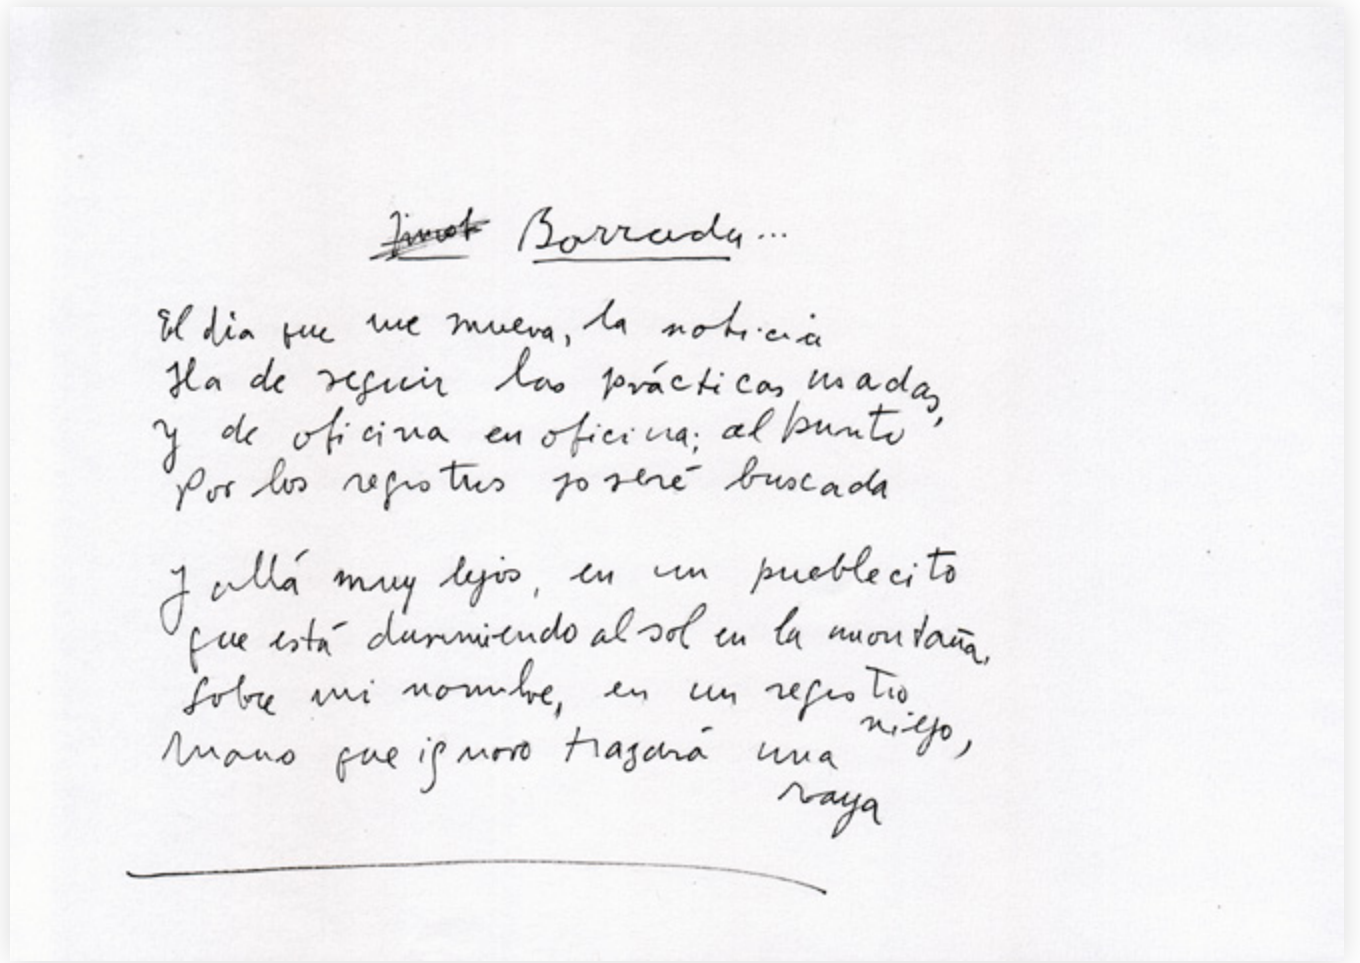 Borrada...
El dia que me muera, la noticia
Ha de seguir las prácticas usadas,
y de oficina en oficina, al punto
Por los registros yo seré buscada
Y allá muy lejos, en un pueblecito
que está durmiendo al sol en la montaña,
Sobre mi nombre, en un registro
viejo,
Mano que ignoro trazará una
raya